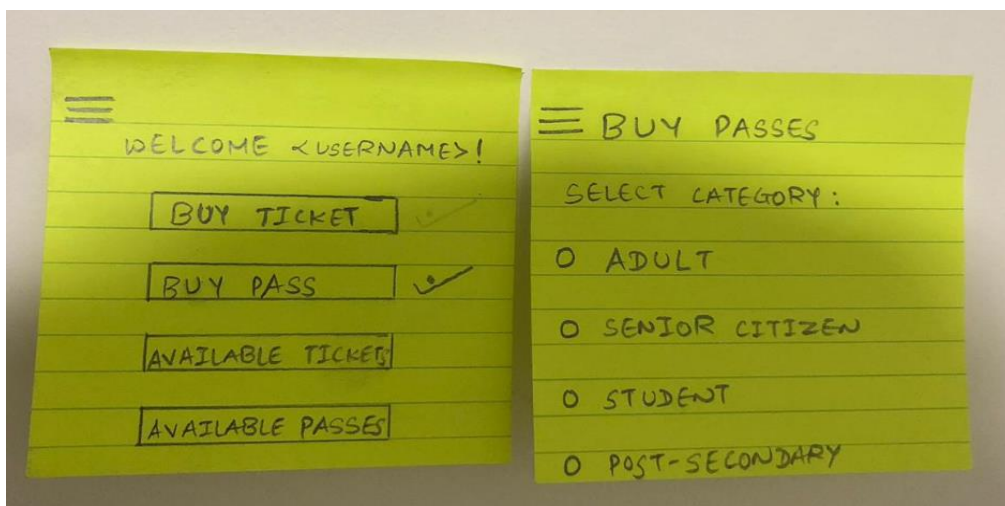 WELCOME <USERNAME>!
BUY TICKET
BUY PASS
AVAILABLE TICKETS
AVAILABLE PASSES
BUY PASSES
SELECT CATEGORY:
O ADULT
O SENIOR CITIZEN
O STUDENT
O POST-SECONDARY